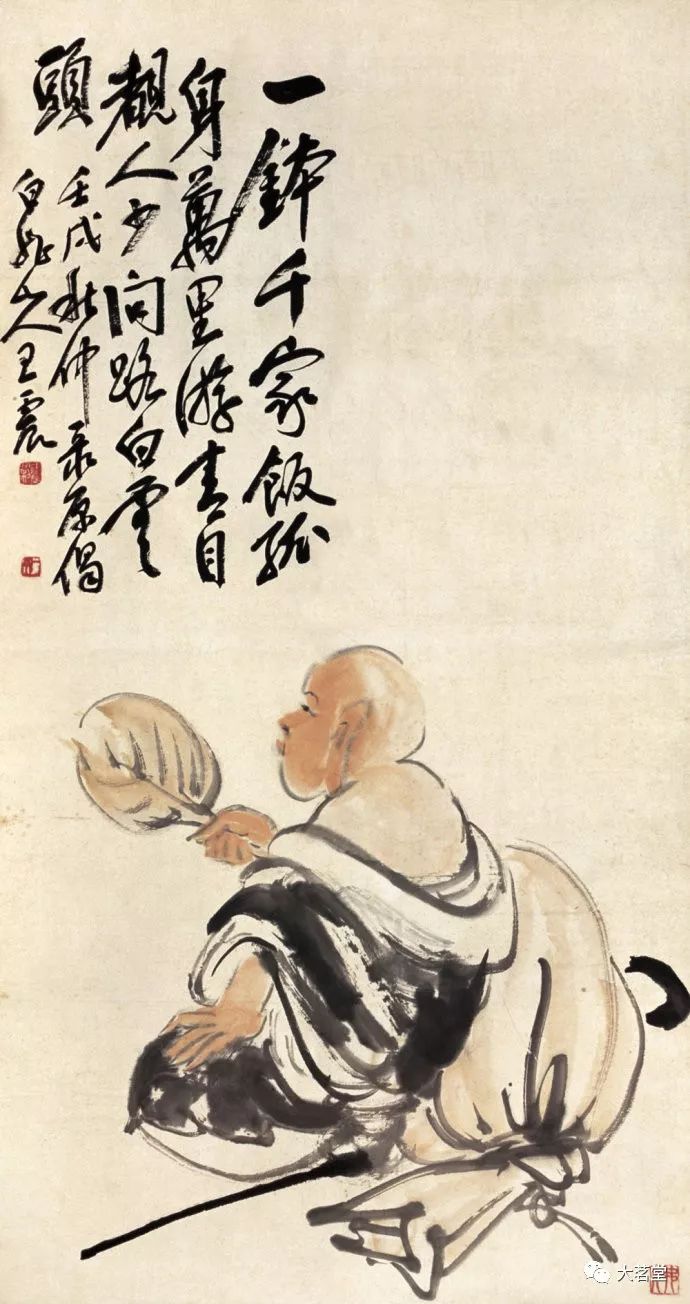 一鉢千家飯孤
身萬里游青目
覩人少问路白雲
頭
壬戌秋仲录原偈
白龍山人王震
大茗堂